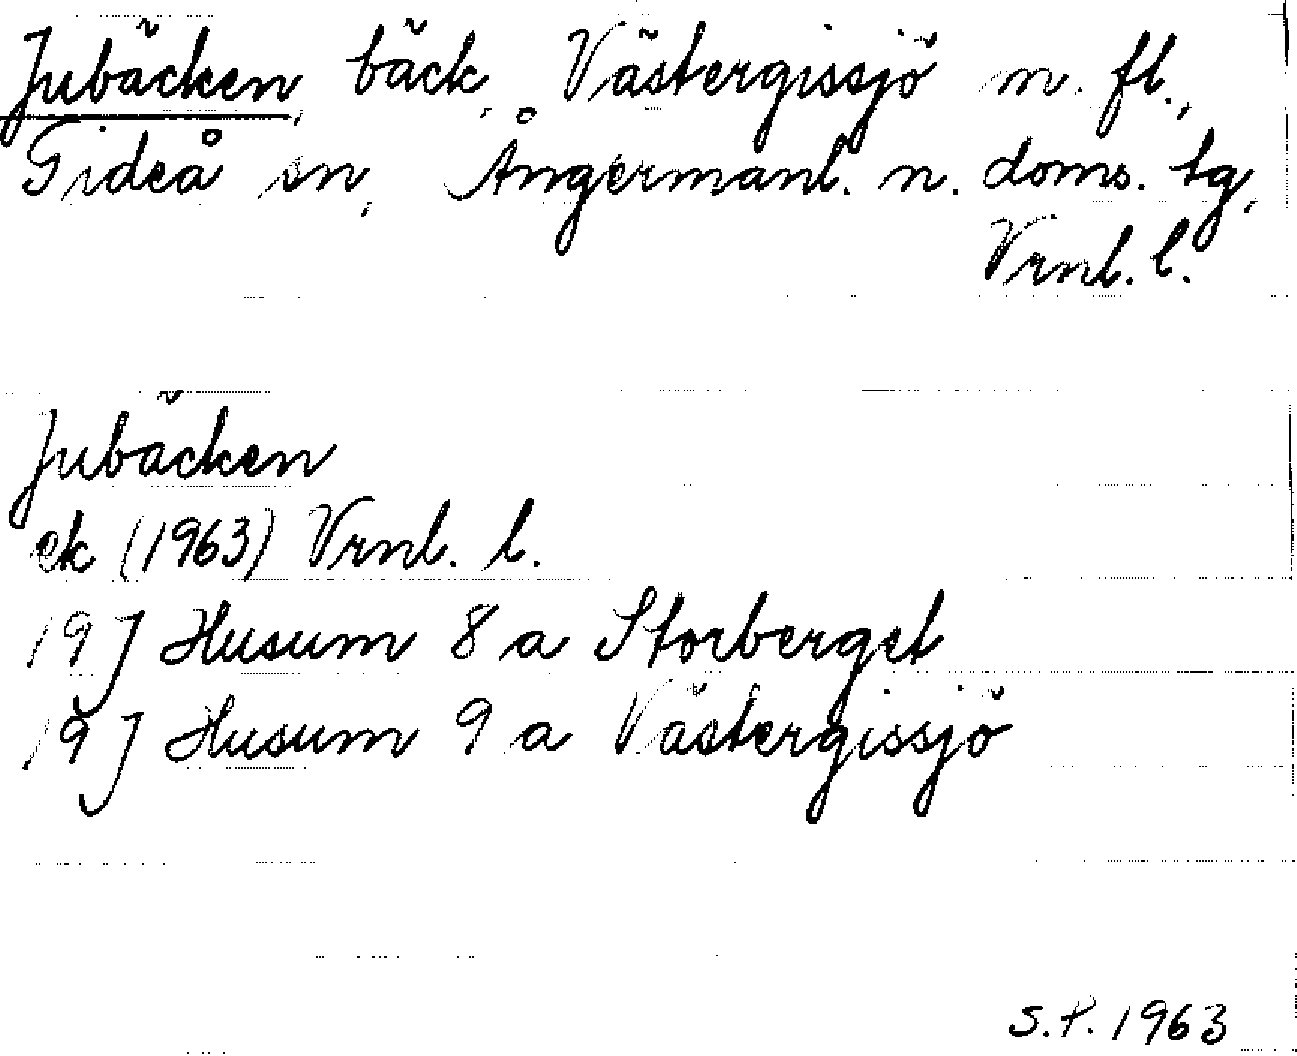 Jubäcken, bäck, Västergissjö m. fl.,
Gideå sn, Ångermanl. n. doms. tg,
Vrnl. l.
Jubäcken
ek (1963) Vrnl. l.
19J Husum 8 a Storberget
19J Husum 9 a Västergissjö
S.P. 1963